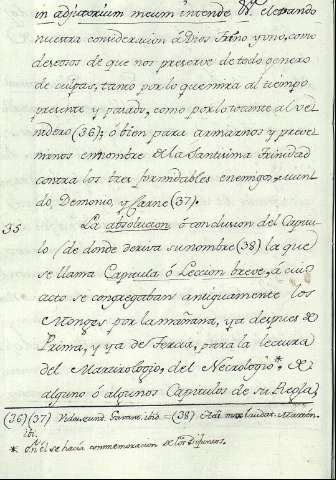 in adjutorium meum intende &c. elevando
nuestra consideracion â Dios trino y uno, como
deseosos de que nos preserve de todo genero
de culpas, tanto por lo que mira al tiempo
presente y pasado, como por lo tocante al ve-
nidero (36); ô bien para armarnos y preve-
nirnos en nombre de la Santisima Trinidad
contra los tres formidables enemigos, mun-
do, Demonio, y Carne (37).
35 La absolucion ô conclusion del Capitu-
lo (de donde deriva su nombre (38) la que
se llama Capitula ô Leccion breve, â cuio
acto se congregaban antiguamente los
Monges por la mañana, ya despues de
Prima, y ya de Tercia, para la lectura
del Martirologio, del Necrologio,* de
alguno ô algunos Capitulos de su Regla,
(36)(37) Vide, Gavant. ibi. = (38)
ibi.
* En el se hacia conmemoracion de los Difuntos.